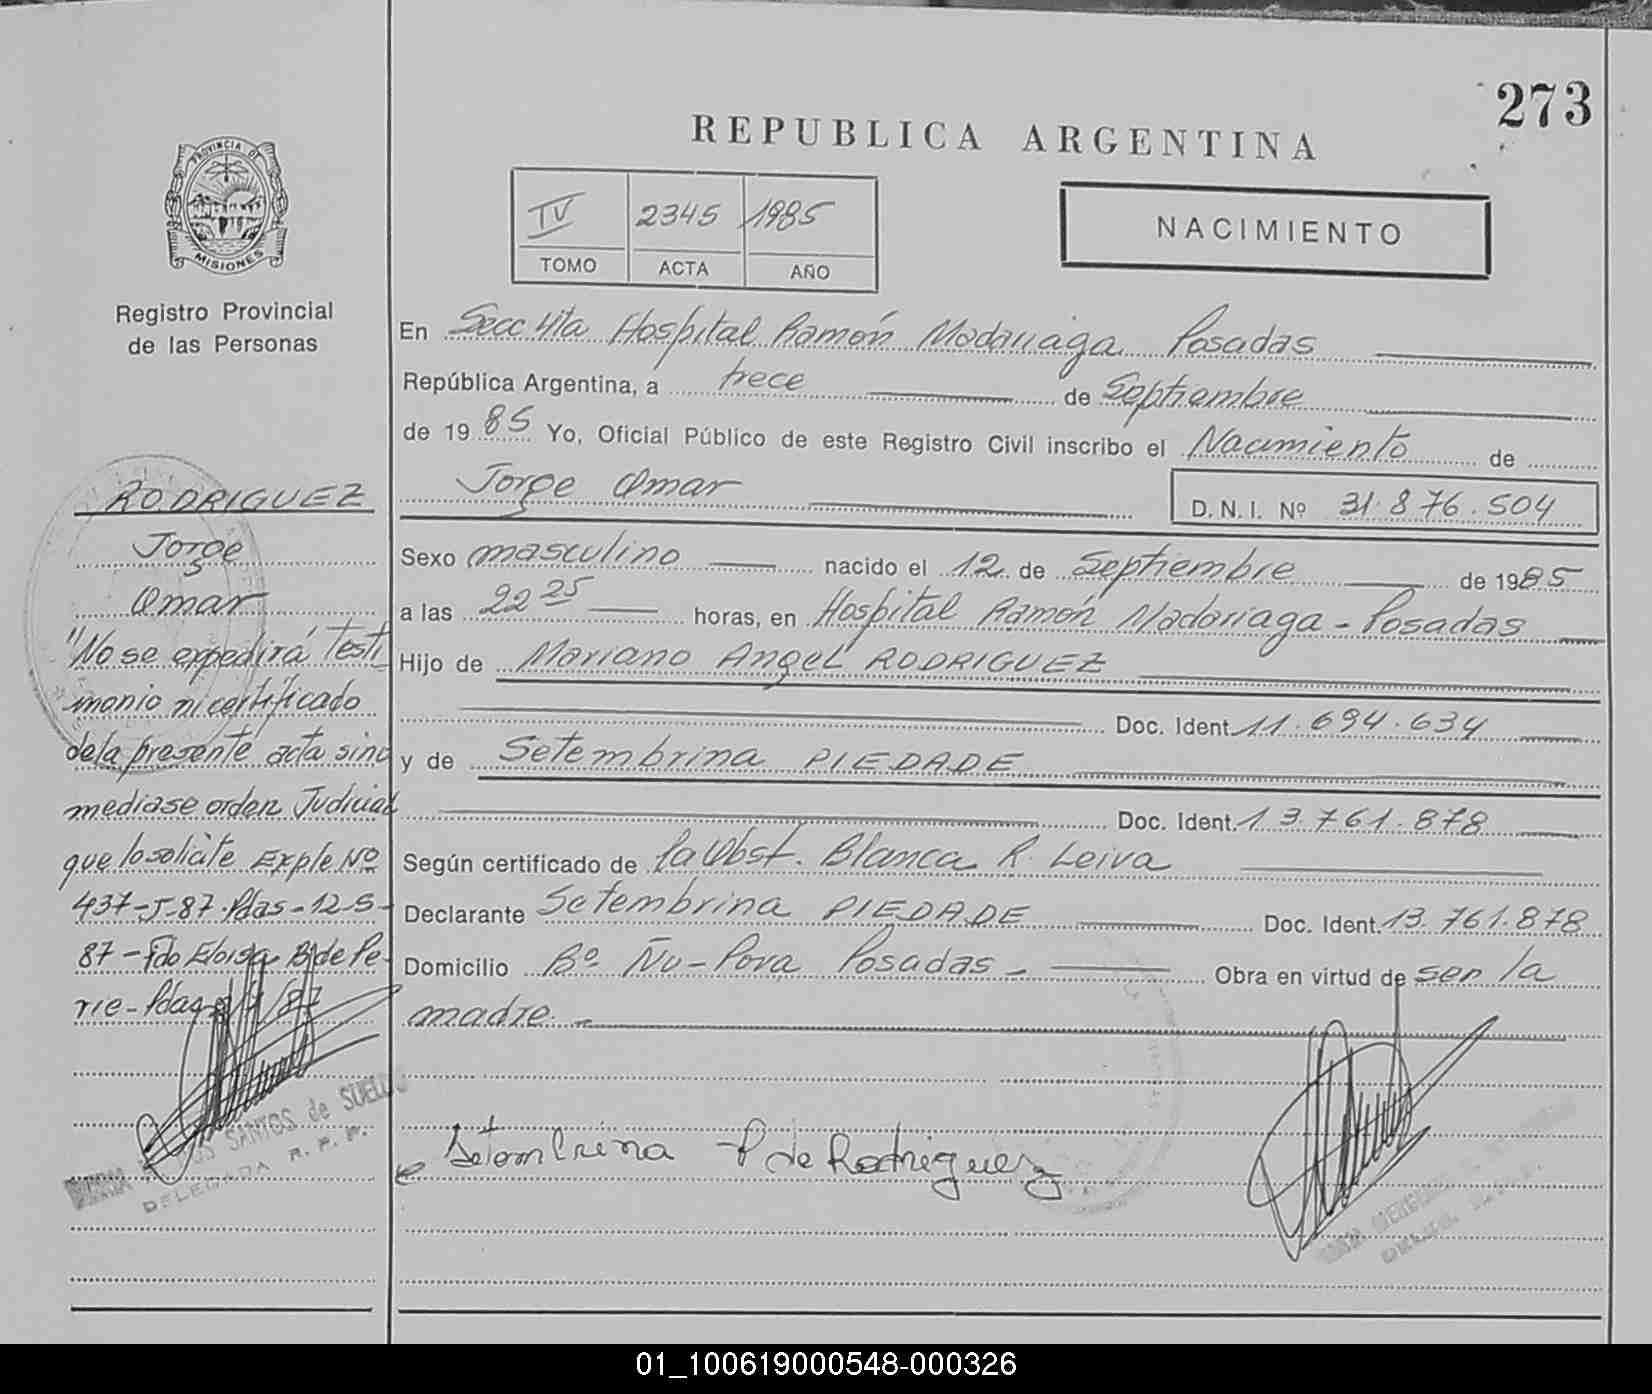 273
REPUBLICA ARGENTINA
PROVINCIA DE
MISIONES
Registro Provincial
de las Personas
IV 2345 1985
TOMO ACTA AÑO
NACIMIENTO
En Secc 4ta Hospital Ramón Madariaga Posadas
República Argentina, a trece de Septiembre
de 1985 Yo, Oficial Público de este Registro Civil inscribo el Nacimiento de
Jorge Omar D. N. I. Nº 31.876.504
Sexo masculino nacido el 12 de Septiembre de 1985
a las 22 25 horas, en Hospital Ramón Madariaga - Posadas
Hijo de Mariano Angel RODRIGUEZ
Doc. Ident. 11.694.634
y de Setembrina PIEDADE
Doc. Ident. 13.761.878
Según certificado de la Obst. Blanca R. Leiva
Declarante Setembrina PIEDADE Doc. Ident. 13.761.878
Domicilio Bº Ñu-Pora Posadas - Obra en virtud de ser la
madre. -
Setembrina P de Rodriguez
RODRIGUEZ
Jorge
Omar
"No se expedirá testi
monio ni certificado
de la presente acta sino
mediase orden Judicial
que lo solicite Expte Nº
437-J-87-Pdas-12-5-
87-Fdo Eloisa B de Pe-
rie-Pdas
SANTOS de SUELDO
DELEGADA R. P. P.
01_100619000548-000326